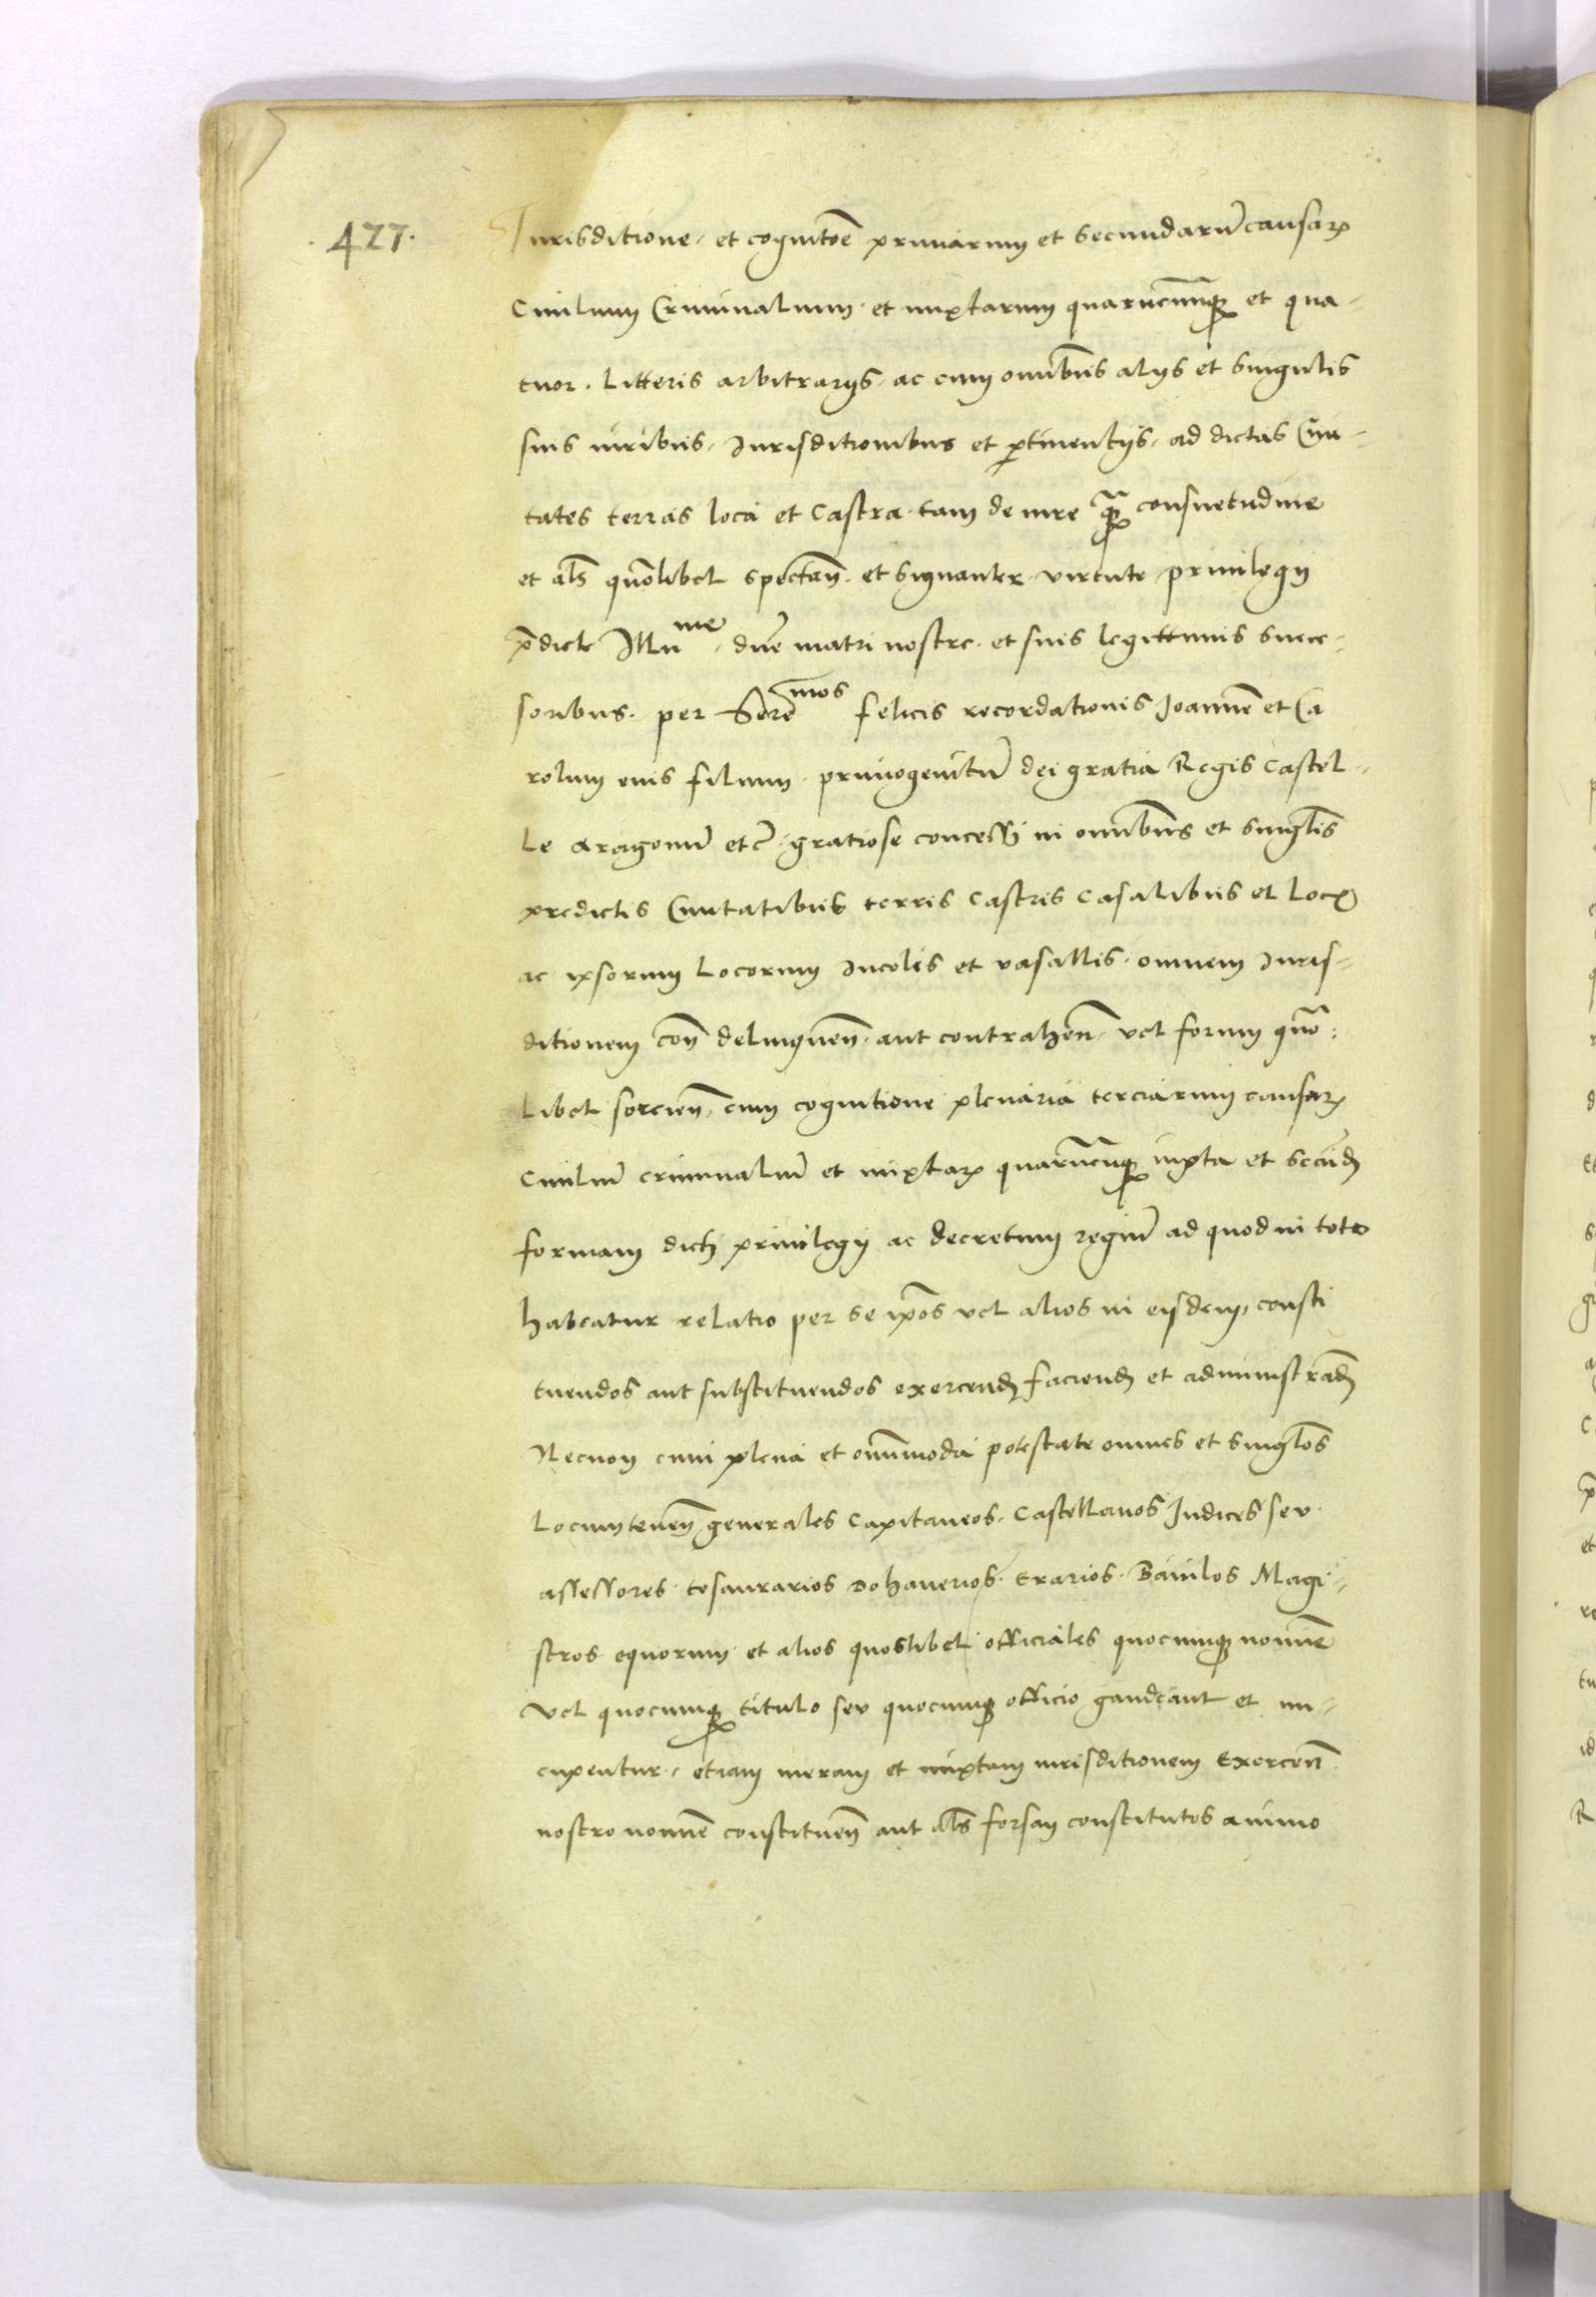 .477.
Jurisditione. et cognitõe primarum et secundarũ causaꝝ
Ciuilium Criminalium. et mixtarum quarucumqꝫ et qua-
tuor. litteris arbitrarijs. ac cum omnibus alijs et singulis
suis iuribus. Jurisditionibus et ꝑtinentijs. ad dictas Ciui-
tates terras loca et Castra tam de iure qꝫ̃ consuetudine
et al̃s quõlibet spectañ. et signanter virtute priuilegij
p̃dicte Illu^me. dñe matri nostre. et suis legittimis succe-
soribus. per Sere^mos felicis recordationis Joannẽ et Ca
rolum eius filium primogenitũ dei gratia Regis Castel-
le Aragonũ etc̃. gratiose concessi in omnibus et singl̃is
predictis Ciuitatibus terris Castris Casalibus et Locꝭ
ac ipsorum Locorum Incolis et vasallis. omnem Juris-
ditionem coñ delinquẽn. aut contraheñ. vel forum quõ-
libet sorcien̄. cum cognitione plenaria terciarum causaꝝ
Ciuiliũ criminaliũ et mixtaꝝ quarũcũqꝫ iuxta et secũdꝫ
formam dicti priuilegij ac decretum regiũ ad quod in toto
habeatur relatio per se ip̃os vel alios in eisdem consti
tuendos aut substituendos exercendꝫ faciendꝫ et administradꝫ
Necnon cum plena et om̃imoda potestate omnes et singl̃os
Locumteneñ generales Capitaneos. Castellanos Judices seu
assessores. tesaurarios Dohanerios. Erarios. Baiulos Magi-
stros equorum et alios quoslibet officiales quocumqꝫ nomiñe
vel quocumqꝫ titulo seu quocumqꝫ officio gaudeant et nu-
cupentur. etiam meram et mixtam iurisditionem Exerceñ
nostro nomiñe constitueñ aut al̃s forsan constitutos animo